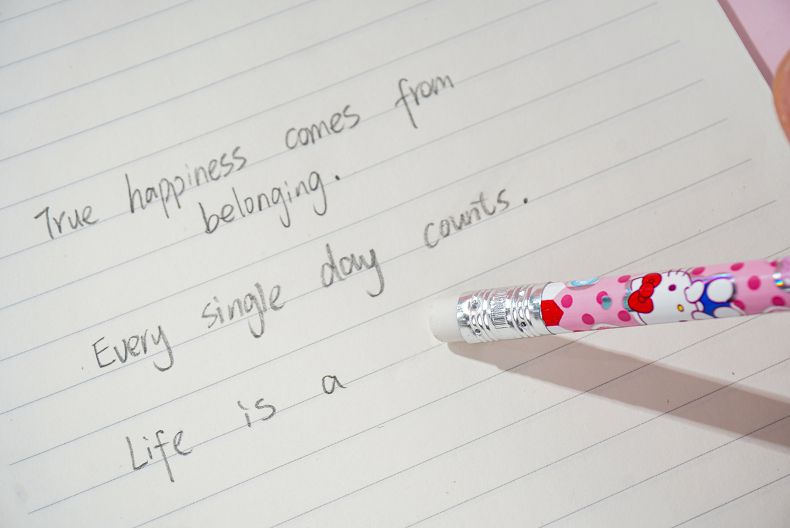 True happiness comes from
belonging.
Every single day counts.
Life is a